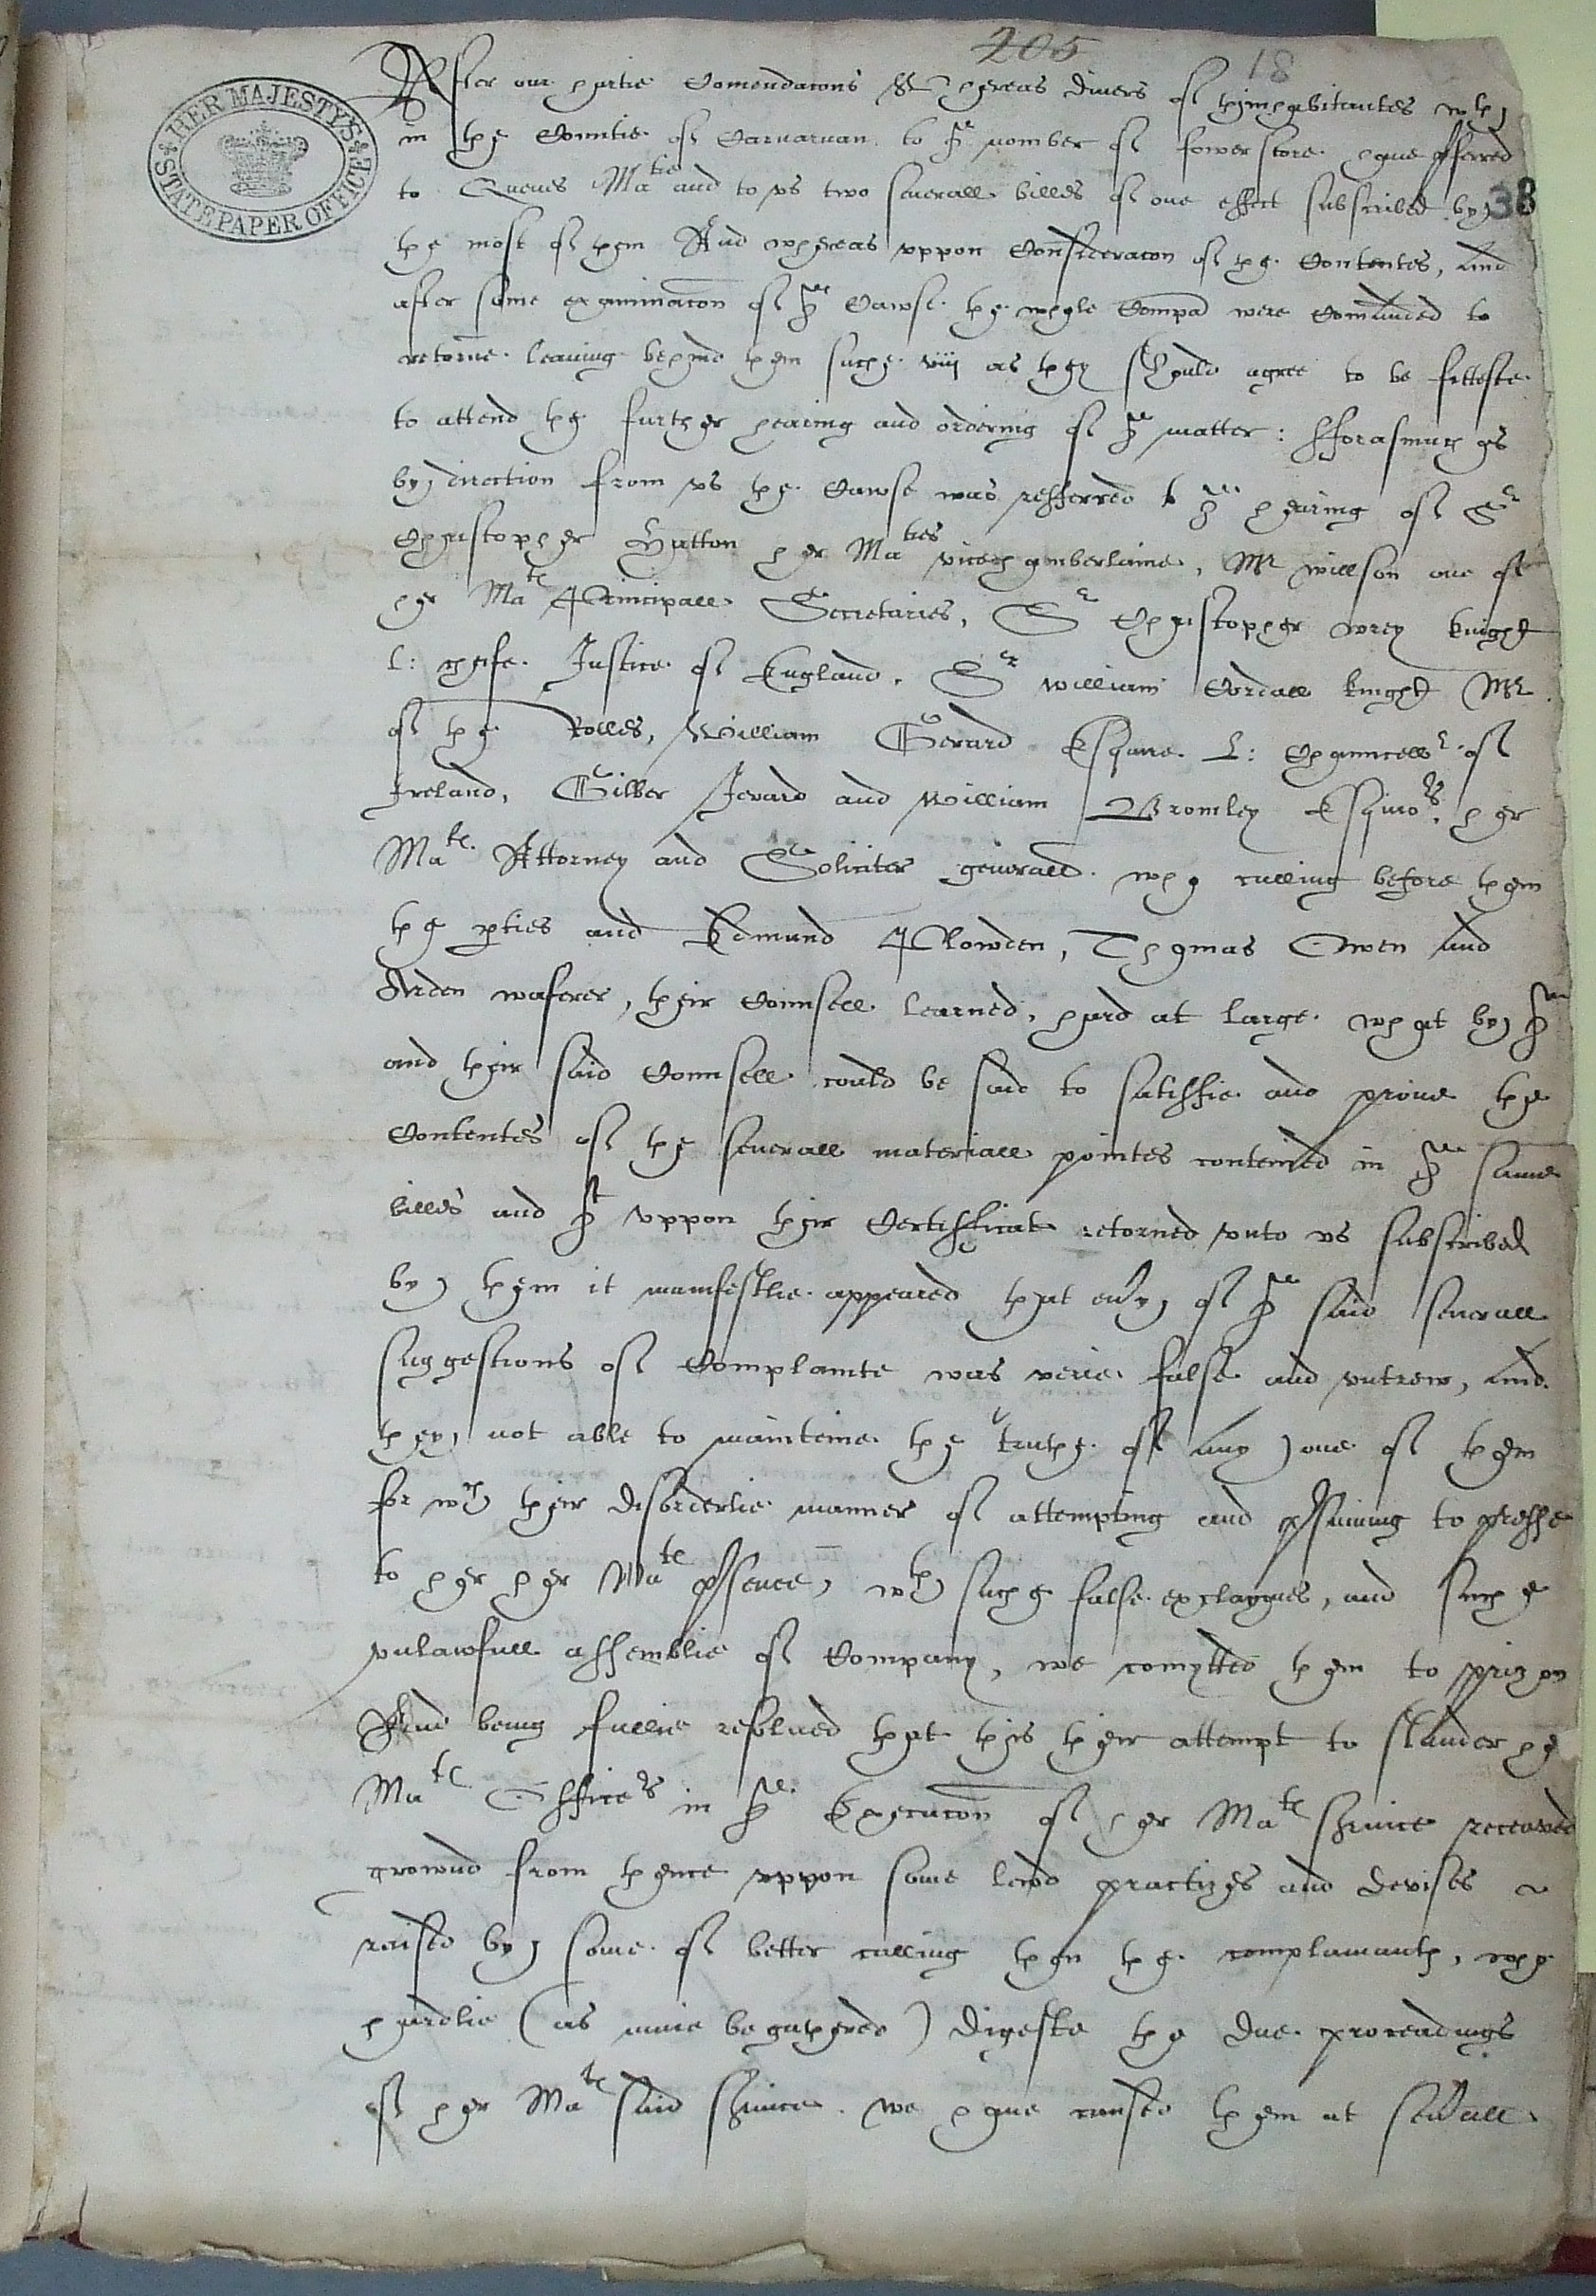 205 18
After our hartie Comendacons Whereas divers of thinhabitantes wth
in the Countie of Carnarvan to ye nomber of fower score have pferred
to Quenes Matie and to vs two severall billes of one effect subscribed by
38
the most of them And whereas vppon Consideracon of the Contentes, And
after some examinacon of ye Cawse the whole Compa were Comaunded to
retorne leaving behynd them suche viij as they should agree to be fitteste
to attend the further hearing and ordering of ye matter: Fforasmuch as
by direction from vs the Cawse was referred to ye hearing of Sr
Christopher Hatton her Maties vicechamberlaine, Mr Willson one of
her Mats Principall Secretaries, Sr Christopher Wrey knight
L: cheife Justice of England, Sr William Cordall knight Mr
of the Rolles, William Gerard Esquire L: Chauncellr of
Ireland, Gilber Jerard and William Bromley Esquiors her
Mats Attorney and Soliciter generall who calling before them
the pties and Edmund Plowden, Thomas Owen and
Arden Waferer, their Counsell learned, hard at large what by ym
and their said Counsell could be said to satisffie and prove the
Contentes of the severall materiall pointes conteined in ye same
billes and yt vppon their Certifficate retorned vnto vs subscribed
by them it manifestlie appeared that evry of ye said severall
suggestions of Complainte was verie false and vntrew, And
they not able to mainteine the truthe of any one of them
for wch their disorderlie manner of attempting and psuming to presse
to her her Mats psence, wth suche false exclaymes, and suche
vnlawfull assemblie of Company, we comytted them to prizon
And being fullie resolved that this their attempt to slander he
Mats Officers in ye Execucon of her Mats service receaved
grownd from thence vppon some lewd practizes and devises
raised by some of better calling then the complainants, who
hardlie (as maie be gathered) digeste the due proceadings
of her Mats said service. we have caused them at severall
HER MAJESTY'S STATE PAPER OFFICE